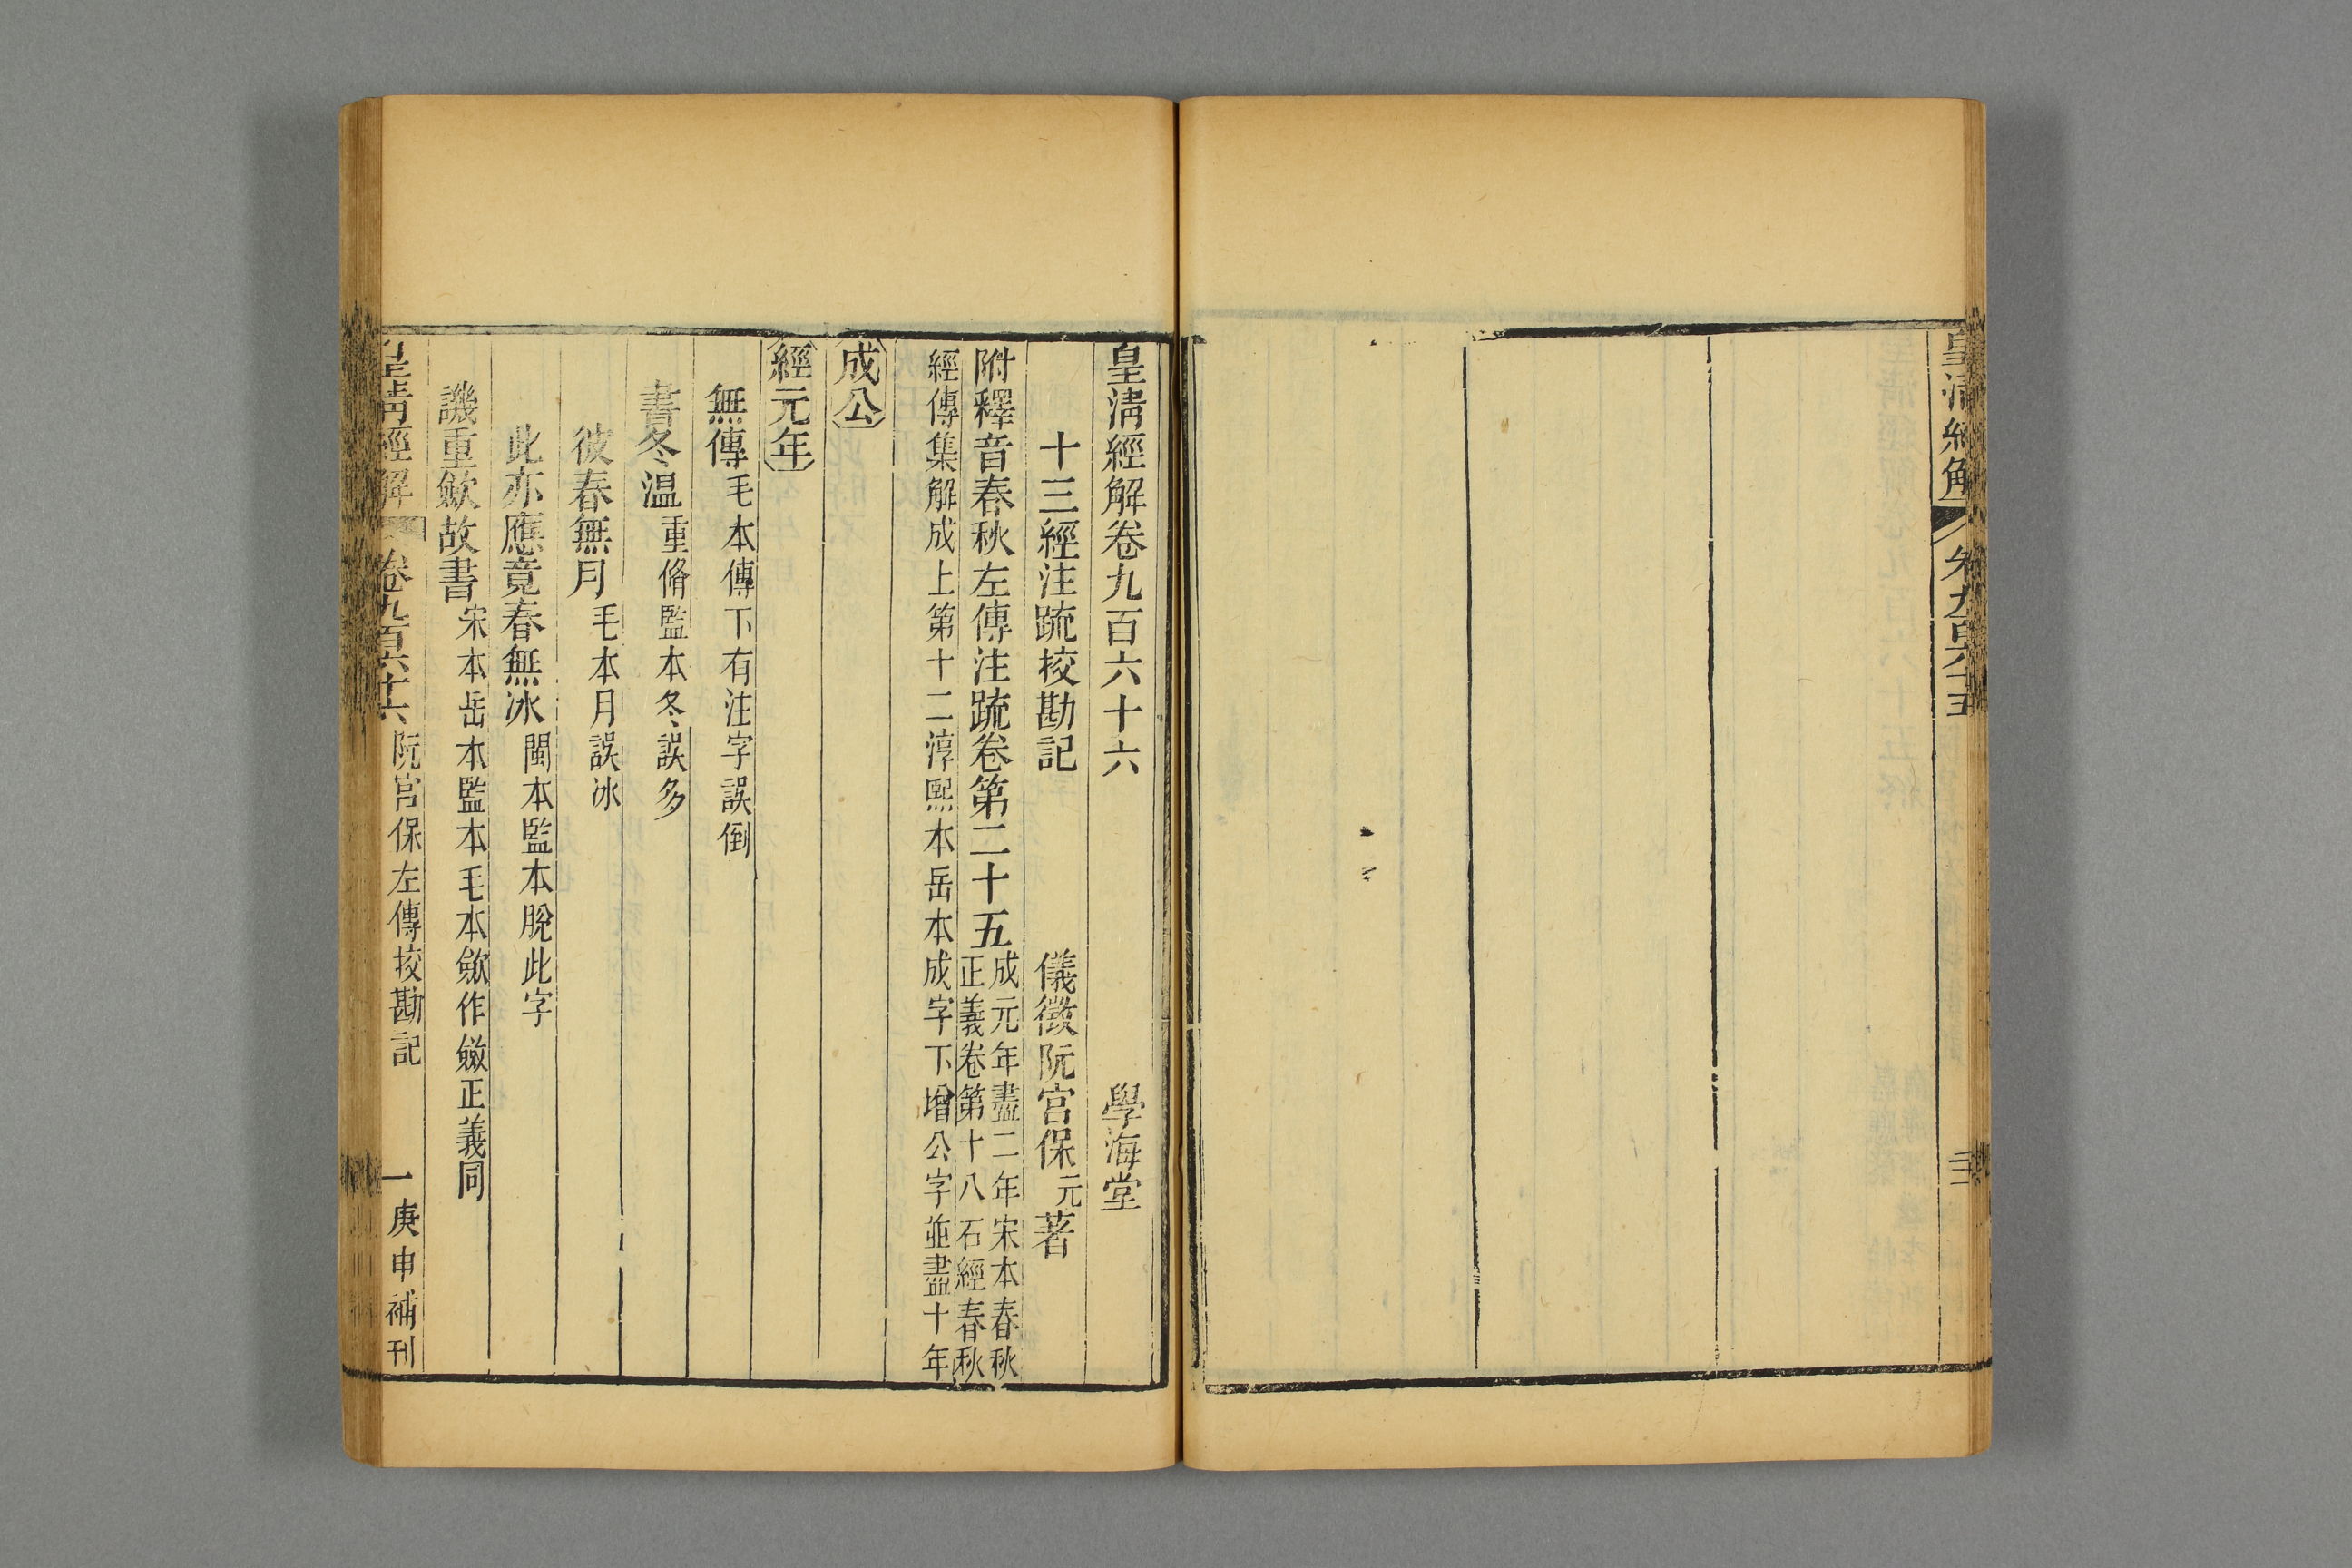 皇清經解
卷九百六十五
皇清經解卷九百六十六
學海堂
十三經注䟽挍勘記
儀徵阮宮保元著
附釋音春秋左傳注䟽卷第二十五
成元年盡二年宋本春秋
正義卷第十八石經春秋
經傳集解成上第十二淳熙本岳本成字下增公字並盡十年
成公
經元年
無傳毛本傳下有注字誤倒
書冬温重脩監本冬誤多
彼春無月毛本月誤冰
此亦應竟春無冰閩本監本脫此字
譏重歛故書宋本岳本監本毛本歛作斂正義同
皇清經解
卷九百六十六
阮宮保左傳挍勘記
一
庚申補刊